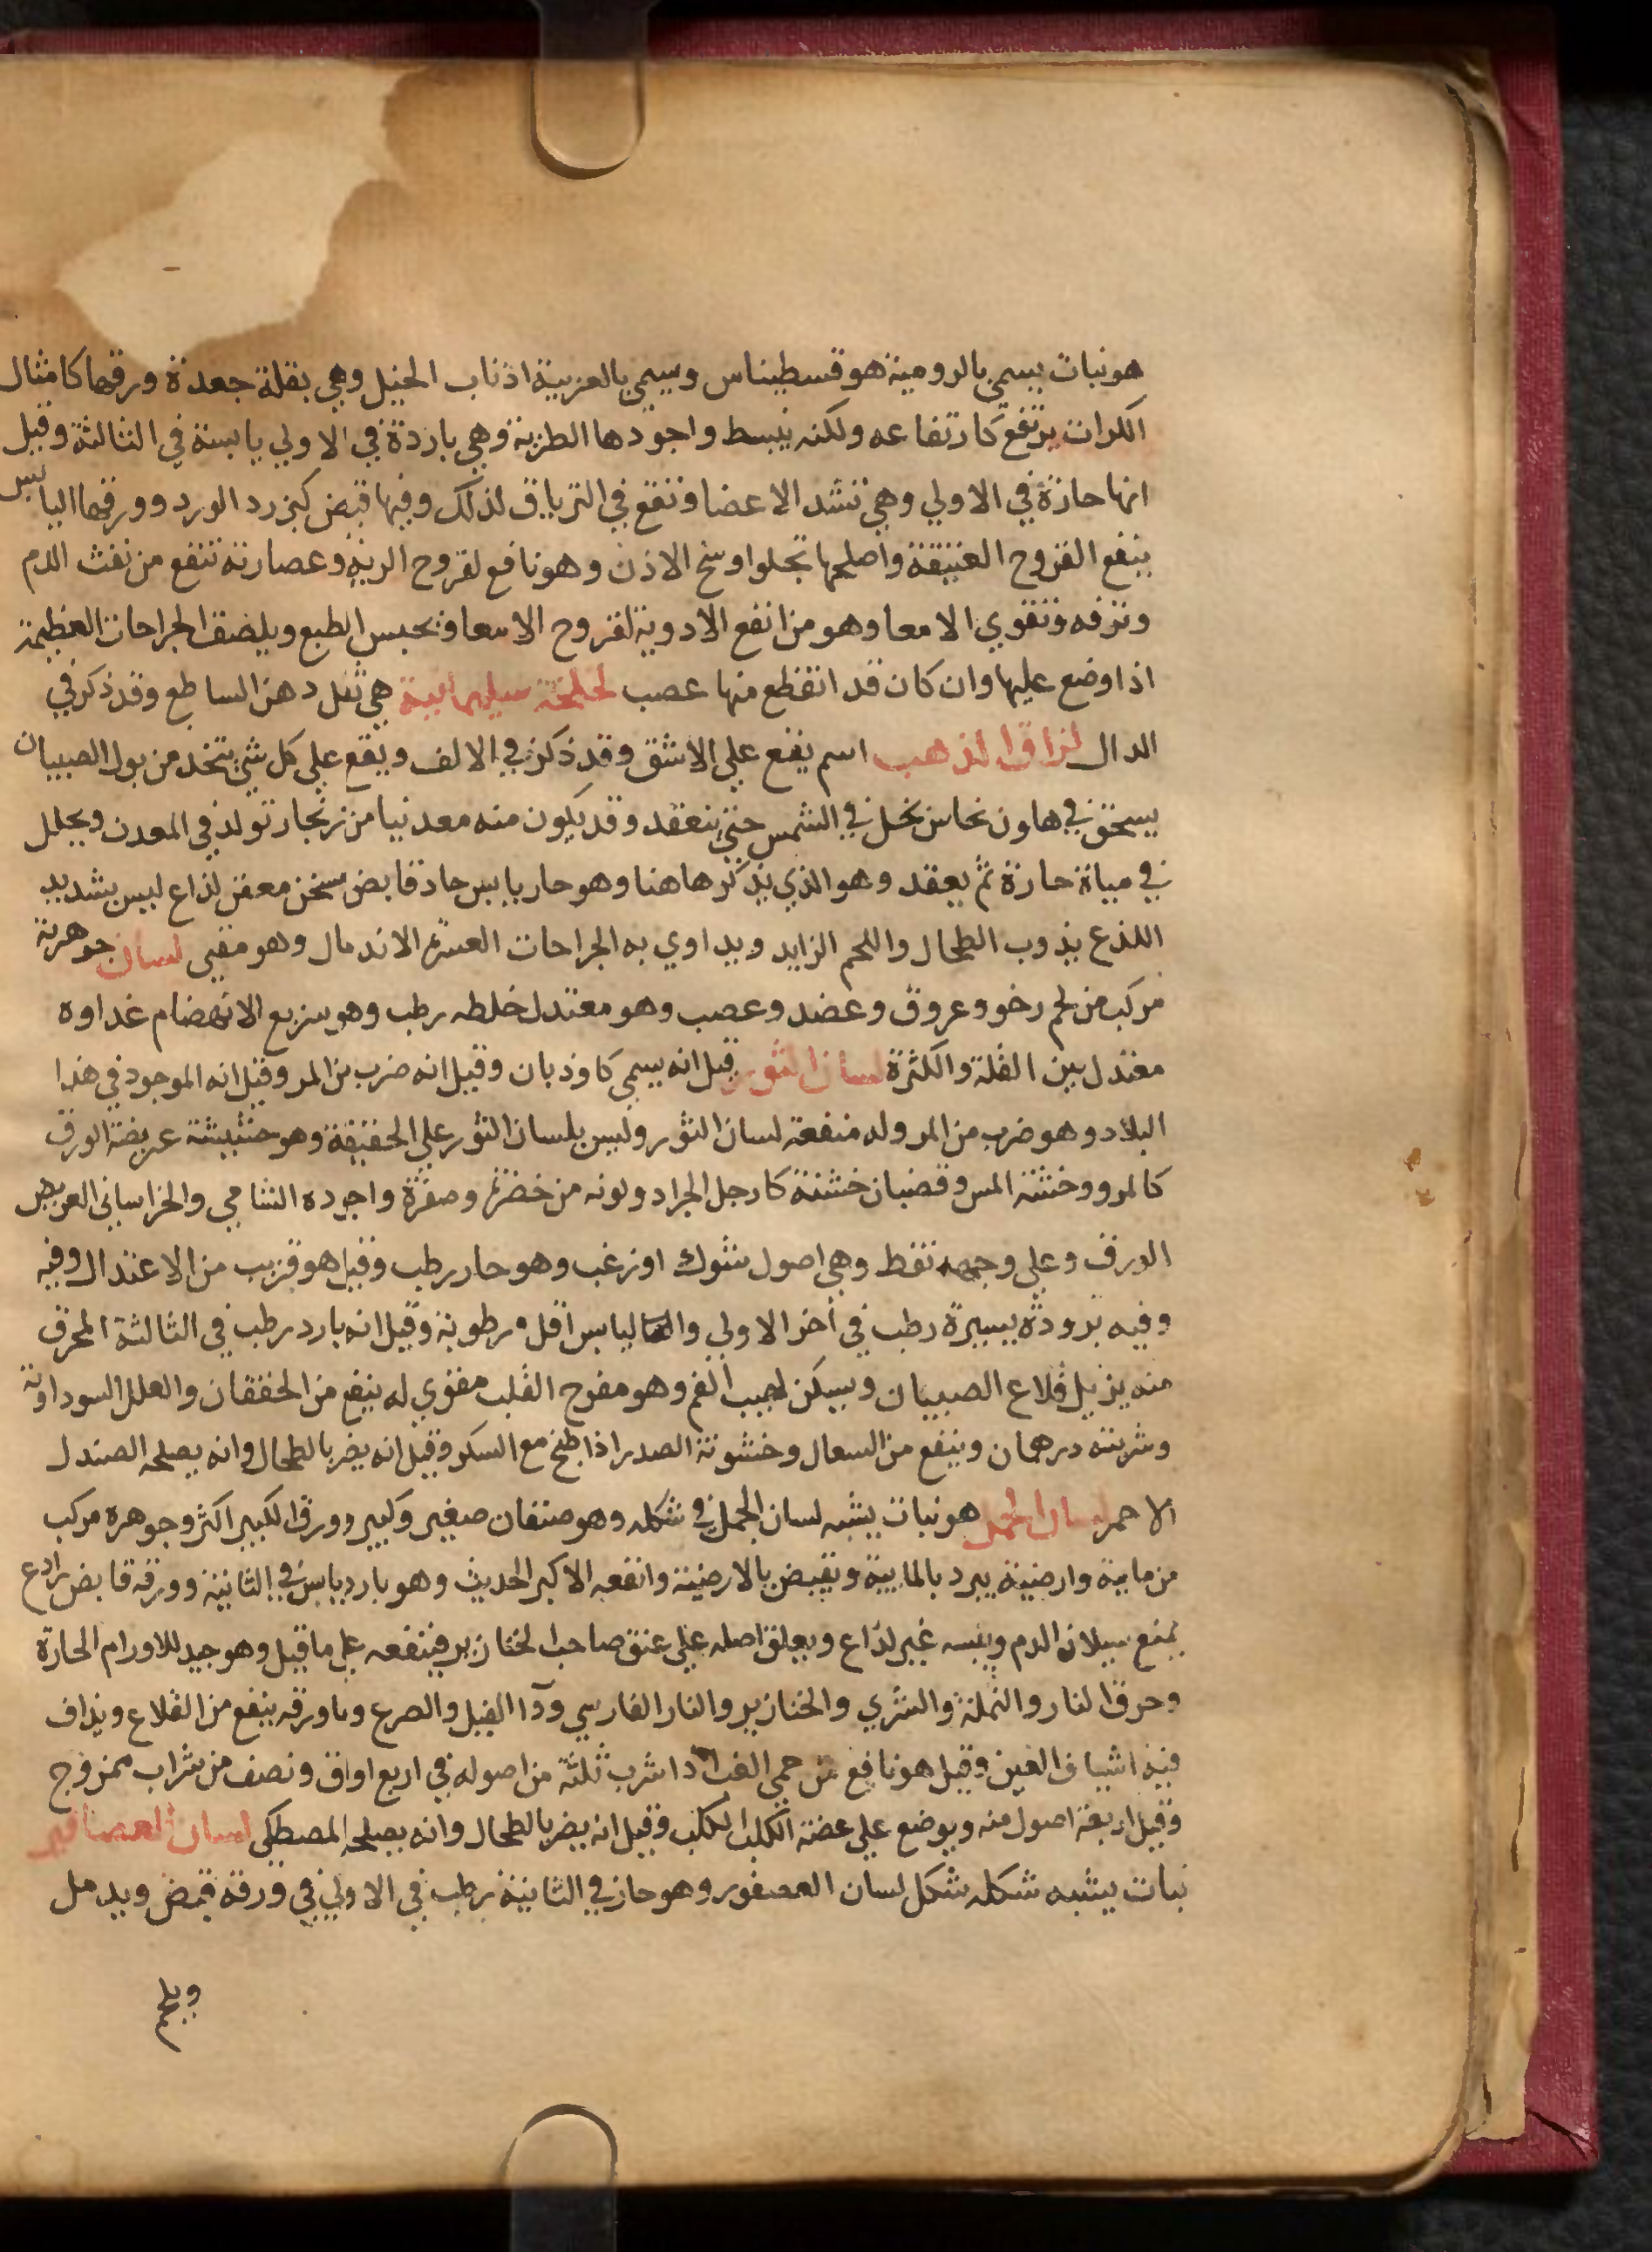 هو نبات يسمي بالرومية هوقسطيناس وسمي بالعربية اذناب الخيل وهي بقلة جعدة ورقها كامثال
الكراث يرتفع كارتفاعه ولكنه ينبسط واجودها الطرية وهي باردة في الاولي يابسة في الثالثة وقيل
انها حارة في الاولي وهي تشد الاعضا وتنفع في الترياق لذلك وفيها قبض كبزرد الورد وورقها اليابس
ينفع القروح العتيقة واصلها تجلوا وسخ الاذن وهو نافع لقروح الرية وعصارته تنفع من نفث الدم
ونزفه وتقوي الامعا وهو من انفع الادوية لقروح الامعا وتحبس الطبع ويلصق الجراحات العظيمة
اذا وضع عليها وان كان قد انقطع منها عصب لخلخة سليمانية هي ثفل دهن الساطع وقد ذكر في
الدال لزاق الذهب اسم يقع علي الاشق وقد ذكر في الالف ويقع علي كل شي يتخذ من بول الصبيان
يسحق في هاون نحاس بخل في الشمس حتي ينعقد وقد يكون منه معدنيا من زنجار تولد في المعدن ويحلل
في مياة حارة ثم يعقد وهو الذي يذكر هاهنا وهو حار يابس حاد قابض سخن معفن لذاع ليس بشديد
اللذع يذوب الطحال واللحم الزايد ويداوي به الجراحات العسرة الاندمال وهو مقيي لسان جوهرية
مركب من لحم رخو وعروق وعضد وعصب وهو معتدل خلطه رطب وهو سريع الانهضام غداوه
معتدل بين القلة والكثرة لسان الثور قيل انه يسمي كاوذبان وقيل انه ضرب من المر وقيل انه الموجود في هذا
البلاد وهو ضرب من المر وله منفعة لسان الثور وليس بلسان الثور علي الحقيقة وهو حشيشة عريضة الورق
كالمرو وخشنة المس وقضبان خشنة كارجل الجراد ولونه من خضرة وصفرة واجوده الشامي والخراساني العريض
الورق وعلي وجهه نقط وهي اصول شوك او زغب وهو حار رطب وقيل هو قريب من الاعتدال وفيه
وفيه برودة يسيرة رطب في اخر الاولي واليابس اقل رطوبة وقيل انه بارد رطب في الثالثة المحرق
منه يزيل قلاع الصبيان ويسكن لهيب الفم وهو مفرح القلب مقوي له ينفع من الخفقان والعلل السوداوية
وشربته درهمان وينفع من السعال وخشونة الصدر اذا طبخ مع السكر وقيل انه يضر بالطحال وانه يصلحه الصندل
الاحمر لسان الحمل هو نبات يشبه لسان الحمل في شكله وهو صنفان صغير وكبير وورق الكبير اكثر وجوهره مركب
من مايية وارضية يبرد بالمايية وتقبض بالارضية وانفعه الاكبر الحديث وهو بارد يابس في الثانية وورقه قابض رادع
يمنع سيلان الدم ويبسه غير لذاع ويعلق اصله علي عنق صاحب الخنازير فينفعه علي ما قيل وهو جيد للاورام الحارة
وحرق النار والنملة والشري والخنازير والنار الفارسي ودآ الفيل والصرع وماورقه ينفع من القلاع ويذاف
فيه اشياف العين وقيل هو نافع من حمي الغب اذا شرب ثلثة من اصوله في اربع اواق ونصف من شراب ممزوج
وقيل اربعة اصول منه ويوضع علي عضة الكلب الكلب وقيل انه يضر بالطحال وانه يصلحه المصطكي لسان العصافير
نبات يشبه شكله شكل لسان العصفور وهو حار في الثانية رطب في الاولي في ورقه قبض ويدمل
ويلحم